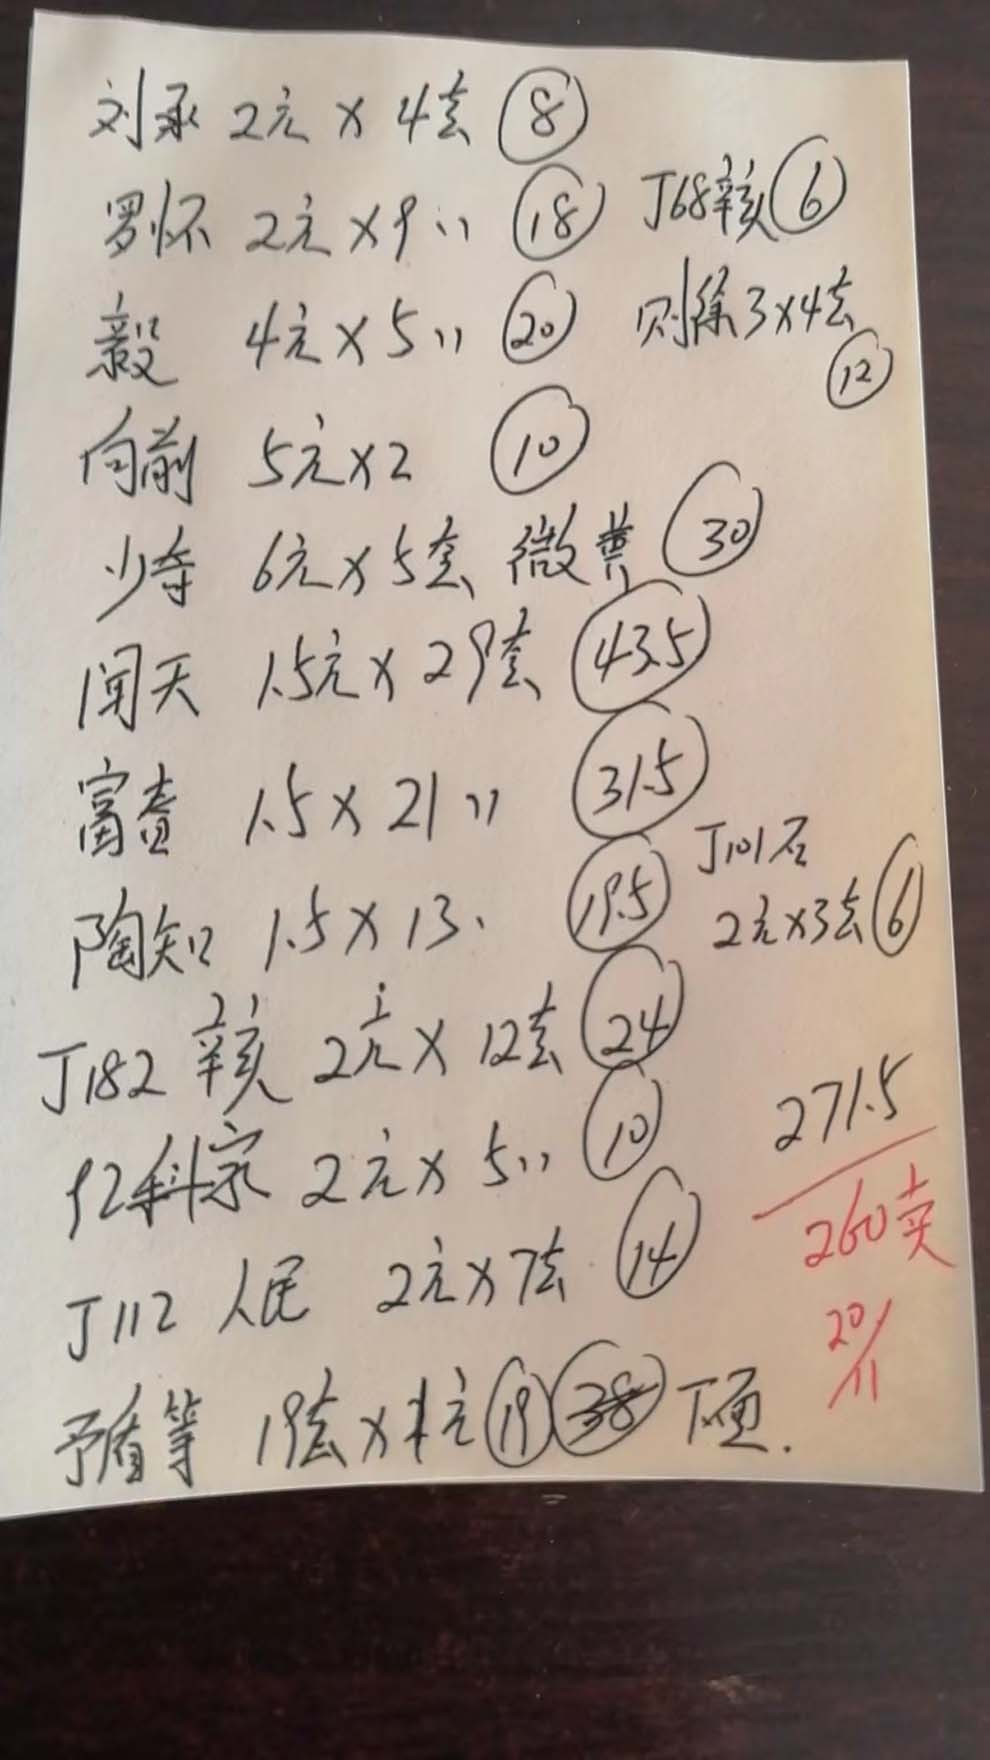 刘承 2元×4套 8
罗怀 2元×9〃 18
J68辛亥 6
毅 4元×5〃 20
则徐3×4套
12
向前 5元×2 10
少奇 6元×5套 微黄 30
闻天 1.5元×29套 43.5
富春 1.5×21〃 31.5
陶知 1.5×13. 19.5
J101石
2元×3套 6
J182 辛亥 2元×12套 24
92科家 2元×5〃 10
271.5
J112 人民 2元×7套 14
260卖
20/11
矛盾等 19套×1元 19 38 丁页.